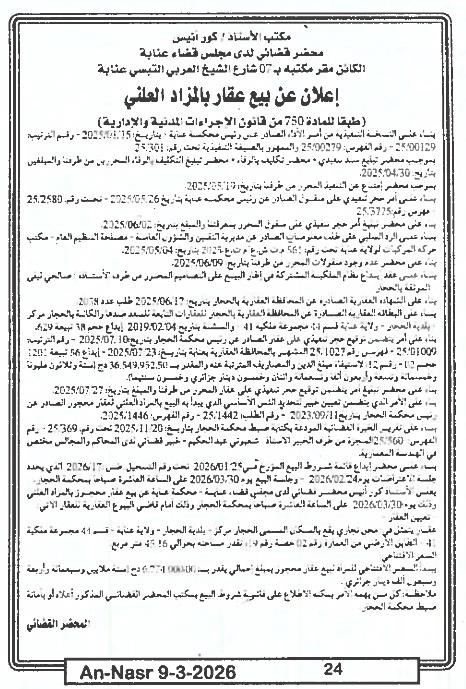 مكتب الأستاذ/ كور أنيس
محضر قضائي لدى مجلس قضاء عنابة
الكائن مقر مكتبه بـ 07 شارع الشيخ العربي التبسي عنابة
إعلان عن بيع عقار بالمزاد العلني
(طبقا للمادة 750 من قانون الإجراءات المدنية والإدارية)
بناء على النسخة التنفيذية من أمر الأداء الصادر عن رئيس محكمة عنابة - بتاريخ: 2025/01/15 - رقم الترتيب:
25/00129 - رقم الفهرس: 25/00279 والممهور بالصيغة التنفيذية تحت رقم: 25/301
بموجب محضر تبليغ سند تنفيذي + محضر تكليف بالوفاء + محضر تبليغ التكليف بالوفاء المحررين من طرفنا والمبلغين
بتاريخ: 2025/04/30
بموجب محضر إمتناع عن التنفيذ المحرر من طرفنا بتاريخ: 2025/05/19
بناء على أمر حجز تنفيذي على منقول الصادر عن رئيس محكمة عنابة بتاريخ 2025/05/26 - تحت رقم 25/2580
- فهرس رقم 25/3775
بناء على محضر تبليغ أمر حجز تنفيذي على منقول المحرر بمعرفتنا والمبلغ بتاريخ: 2025/06/02
بناء على الرد السلبي على طلب معلومات الصادر عن مديرية التقنين والشؤون العامة - مصلحة التنظيم العام - مكتب
حركة المركبات لولاية عنابة تحت رقم: 561 2025 بتاريخ: 2025/05/04
بناء على محضر عدم وجود منقولات المحرر من طرفنا بتاريخ: 2025/06/09
بناء على عقد إيداع نظام الملكية المشتركة في إطار البيع على التصاميم المحرر من طرف الأستاذة - صالحي ليلى
الموثقة بالحجار
بناء على الشهادة العقارية الصادرة عن المحافظة العقارية بالحجار بتاريخ: 2025/06/17 طلب عدد 2038
- بلدية الحجار - ولاية عنابة قسم 44 مجموعة ملكية 41 - والمشتة بتاريخ 2019/02/04 إيداع حجم 38 تربيعة 629
بناء على أمر يتضمن توقيع حجز تنفيذي على عقار الصادر عن رئيس محكمة الحجار بتاريخ: 2025/07/10 - رقم الترتيب:
25/01009 - فهرس رقم 25/1027 المشهر بالمحافظة العقارية بعنابة بتاريخ: 2025/07/23
36.549.952,50 دج
بناء على محضر تبليغ أمر يتضمن توقيع حجز تنفيذي على عقار المحرر من طرفنا والمبلغ بتاريخ: 2025/07/27
بناء على الأمر الذي يتضمن تعيين خبير لتحديد الثمن الأساسي الذي يبدأ به البيع بالمزاد العلني لعقار محجوز الصادر عن
رئيس محكمة الحجار بتاريخ 2023/09/11 - رقم الطلب: 25/1442 - رقم الفهرس: 2025/1446
بناء على تقرير الخبرة القضائية المودعة بكتابة ضبط محكمة الحجار بتاريخ: 2025/11/20 - تحت رقم 25/369 - رقم
الفهرس: 25/560 المنجزة من طرف الخبير الأستاذ - شعيوتي عبد الحكيم - خبير قضائي لدى المحاكم والمجالس مختص
في الهندسة المعمارية
بناء على محضر إيداع قائمة شروط البيع المؤرخ في 2026/01/25 تحت رقم التسجيل
جلسة الاعتراضات يوم 2026/02/24 - وجلسة البيع يوم 2026/03/30 على الساعة العاشرة صباحا بمحكمة الحجار
يعلن الأستاذ كور أنيس محضر قضائي لدى مجلس قضاء عنابة - محكمة عنابة عن بيع عقار محجوز بالمزاد العلني
وذلك يوم 2026/03/30 على الساعة العاشرة صباحا بمحكمة الحجار وذلك أمام قاضي البيوع العقارية للعقار الآتي
تعيين العقار
عقار يتمثل في محل تجاري يقع بالسكان المسمى الحجار مركز - بلدية الحجار - ولاية عنابة - قسم 44 مجموعة ملكية
41 - الطابق الأرضي من العمارة رقم 02 حصة رقم 19 تقدر مساحته بحوالي 45.16 متر مربع
السعر الافتتاحي
يبدأ السعر الافتتاحي للمزاد لبيع عقار محجوز بمبلغ إجمالي يقدر بـ: 6.774.000,00 دج (ستة ملايين وسبعمائة وأربعة
وسبعون ألف دينار جزائري).
ملاحظة: كل من يهمه الأمر يمكنه الاطلاع على قائمة شروط البيع بمكتب المحضر القضائي المذكور أعلاه أو بأمانة
ضبط محكمة الحجار
المحضر القضائي
An-Nasr 9-3-2026 24